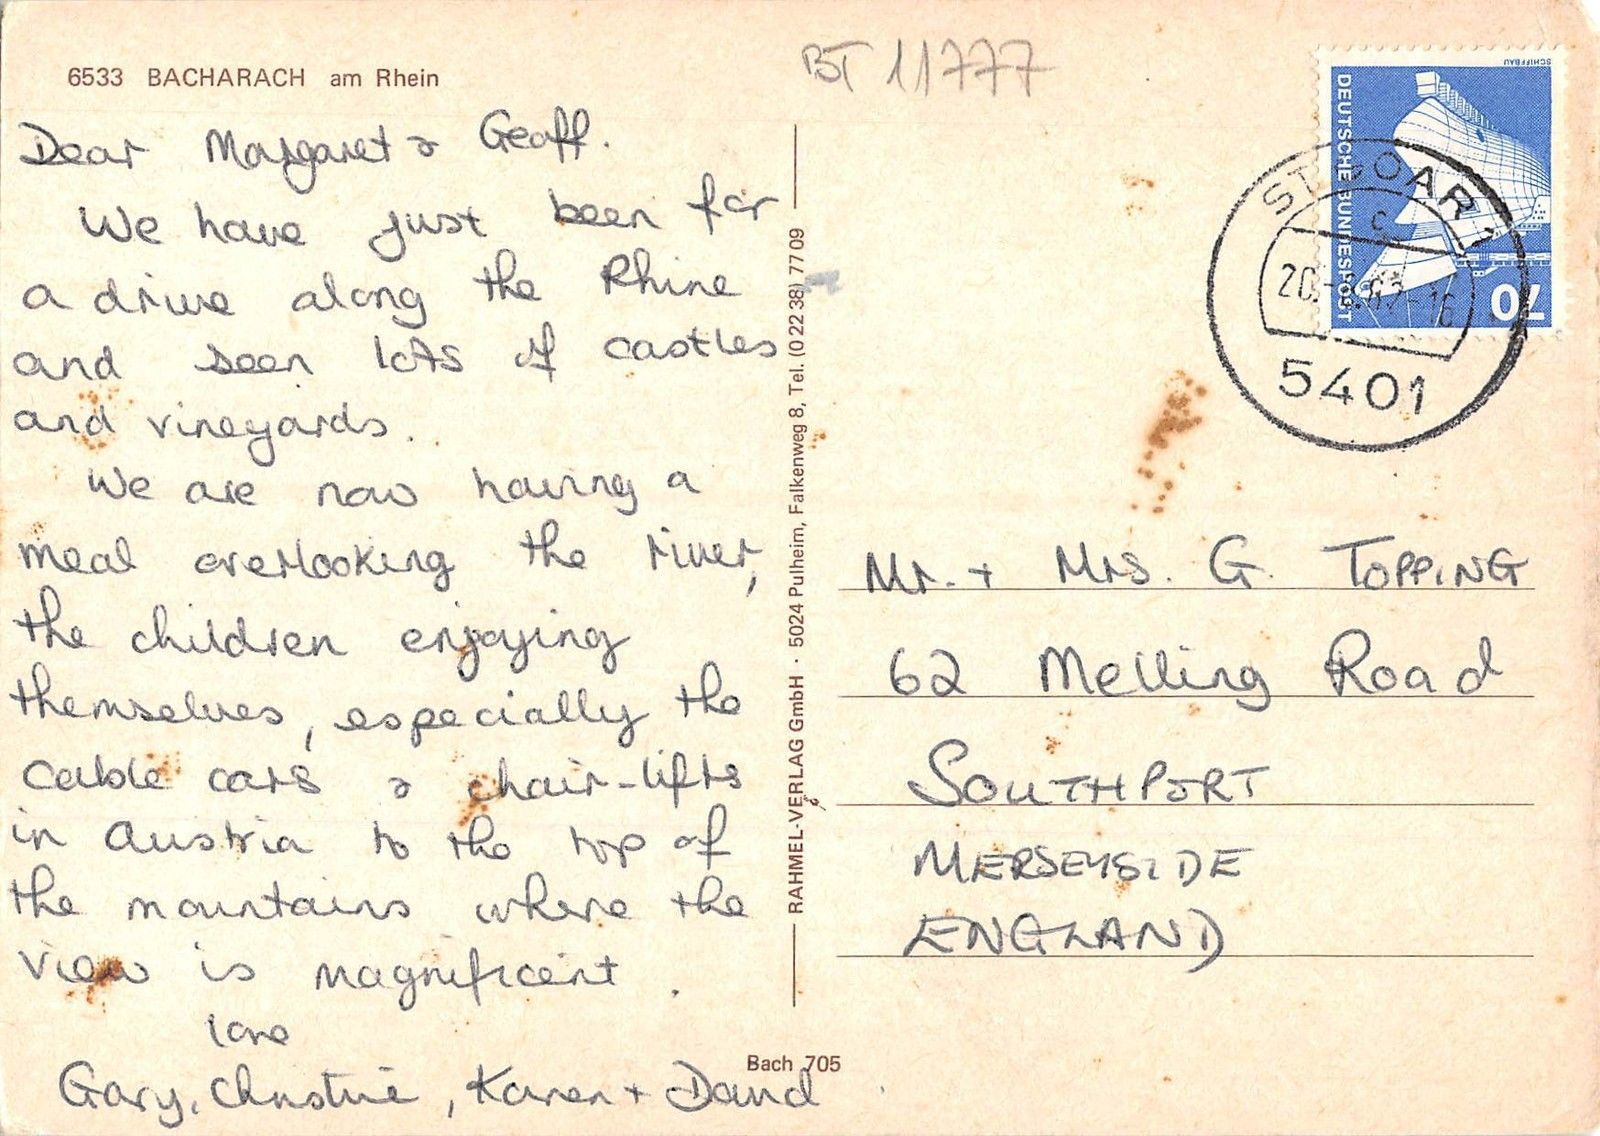 6533 BACHARACH am Rhein
BT 11777
Dear Margaret & Geoff.
We have just been for
a drive along the Rhine
and seen lots of castles
and vineyards.
We are now having a
meal overlooking the river,
the children enjoying
themselves, especially the
cable cars & chair-lifts
in Austria to the top of
the mountains where the
view is magnificent.
love
Gary, Christine, Karen + David
RAHMEL-VERLAG GmbH · 5024 Pulheim, Falkenweg 8, Tel. (0 22 38) 77 09
Bach 705
SCHIFFBAU
DEUTSCHE BUNDESPOST
70
ST GOAR 1
c
5401
Mr. + Mrs. G. TOPPING
62 Melling Road
SOUTHPORT
MERSEYSIDE
ENGLAND